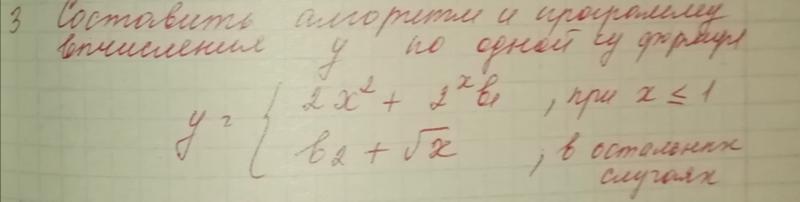 3 Составить алгоритм и программу
вычисления y по одной из формул
y = { 2x² + 2ˣb₁ , при x ≤ 1
b₂ + √x , в остальных
случаях